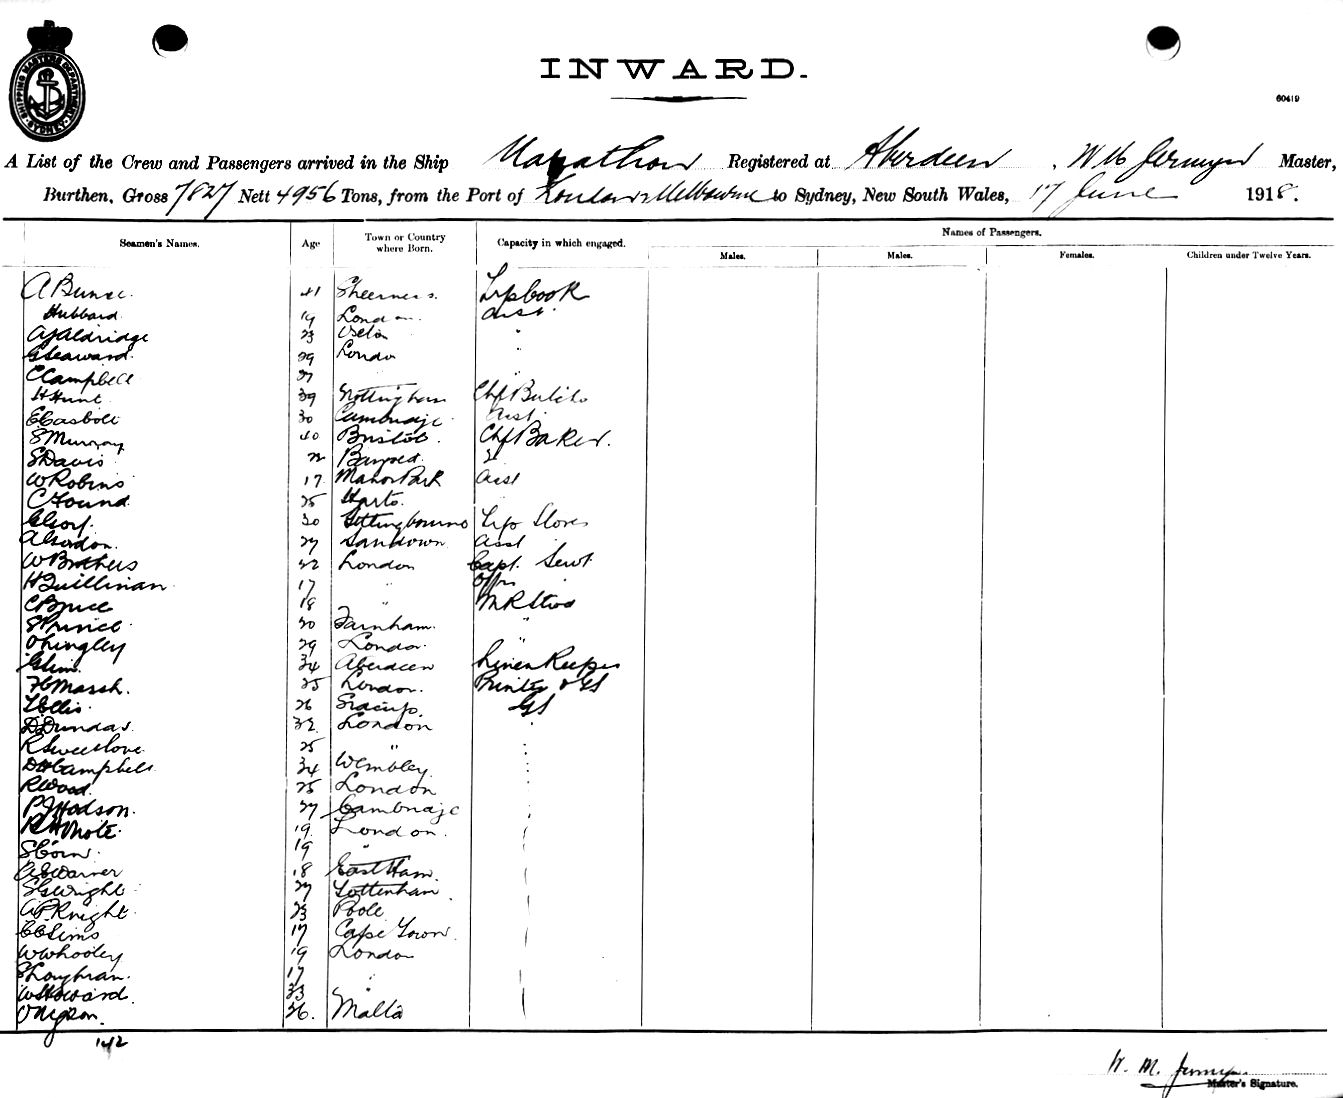 SHIPPING MASTERS DEPARTMENT SYDNEY
INWARD.
60419
A List of the Crew and Passengers arrived in the Ship Marathon Registered at Aberdeen, W M Jermyn Master,
Burthen, Gross 7827 Nett 4956 Tons, from the Port of London & Melbourne to Sydney, New South Wales, 17 June 1918.
Seamen's Names. Age Town or Country where Born. Capacity in which engaged. Names of Passengers.
Males. Males. Females. Children under Twelve Years.
A Bunce. 41 Sheerness.
Hubbard 19 London. Asst
A J Aldridge 23 "
G Seaward 29 London
C Campbell 27
H Hunt 39 Nottingham Chf Butcher
E Casbolt 30 Cambridge Asst
S Murray 40 Bristol. Chf Baker.
S Davis 2
W Robins 17 Manor Park Asst
C Found 25 Harts.
30 Sittingbourne Stores
A Gordon 27 Sandown Asst
W Brothers 22 London Capt. Servt
H Quillinan 17 " Offrs
C Bruce 18 " M R Stwd
S Prince 20 Farnham. "
O Kingley 29 London. "
34 Aberdeen Linen Keeper
F C Marsh. 25 London. Printer & GS
T Ellis 26 Sidcup. GS
D Dundas 32 London
R Sweetlove 25 "
D H Campbell 34 Wembley.
R Wood. 25 London
P J Hodson. 27 Cambridge
19. London.
S Corn. 19 "
A E Warner 18 East Ham.
S G Wright 27 Tottenham
A P Knight 23 Poole
C C Sims 17 Cape Town.
W Whooley 19 London
S Loughran. 17 "
W S Howard. 23 "
26. Malta
142
W. M. Jermyn
Master's Signature.